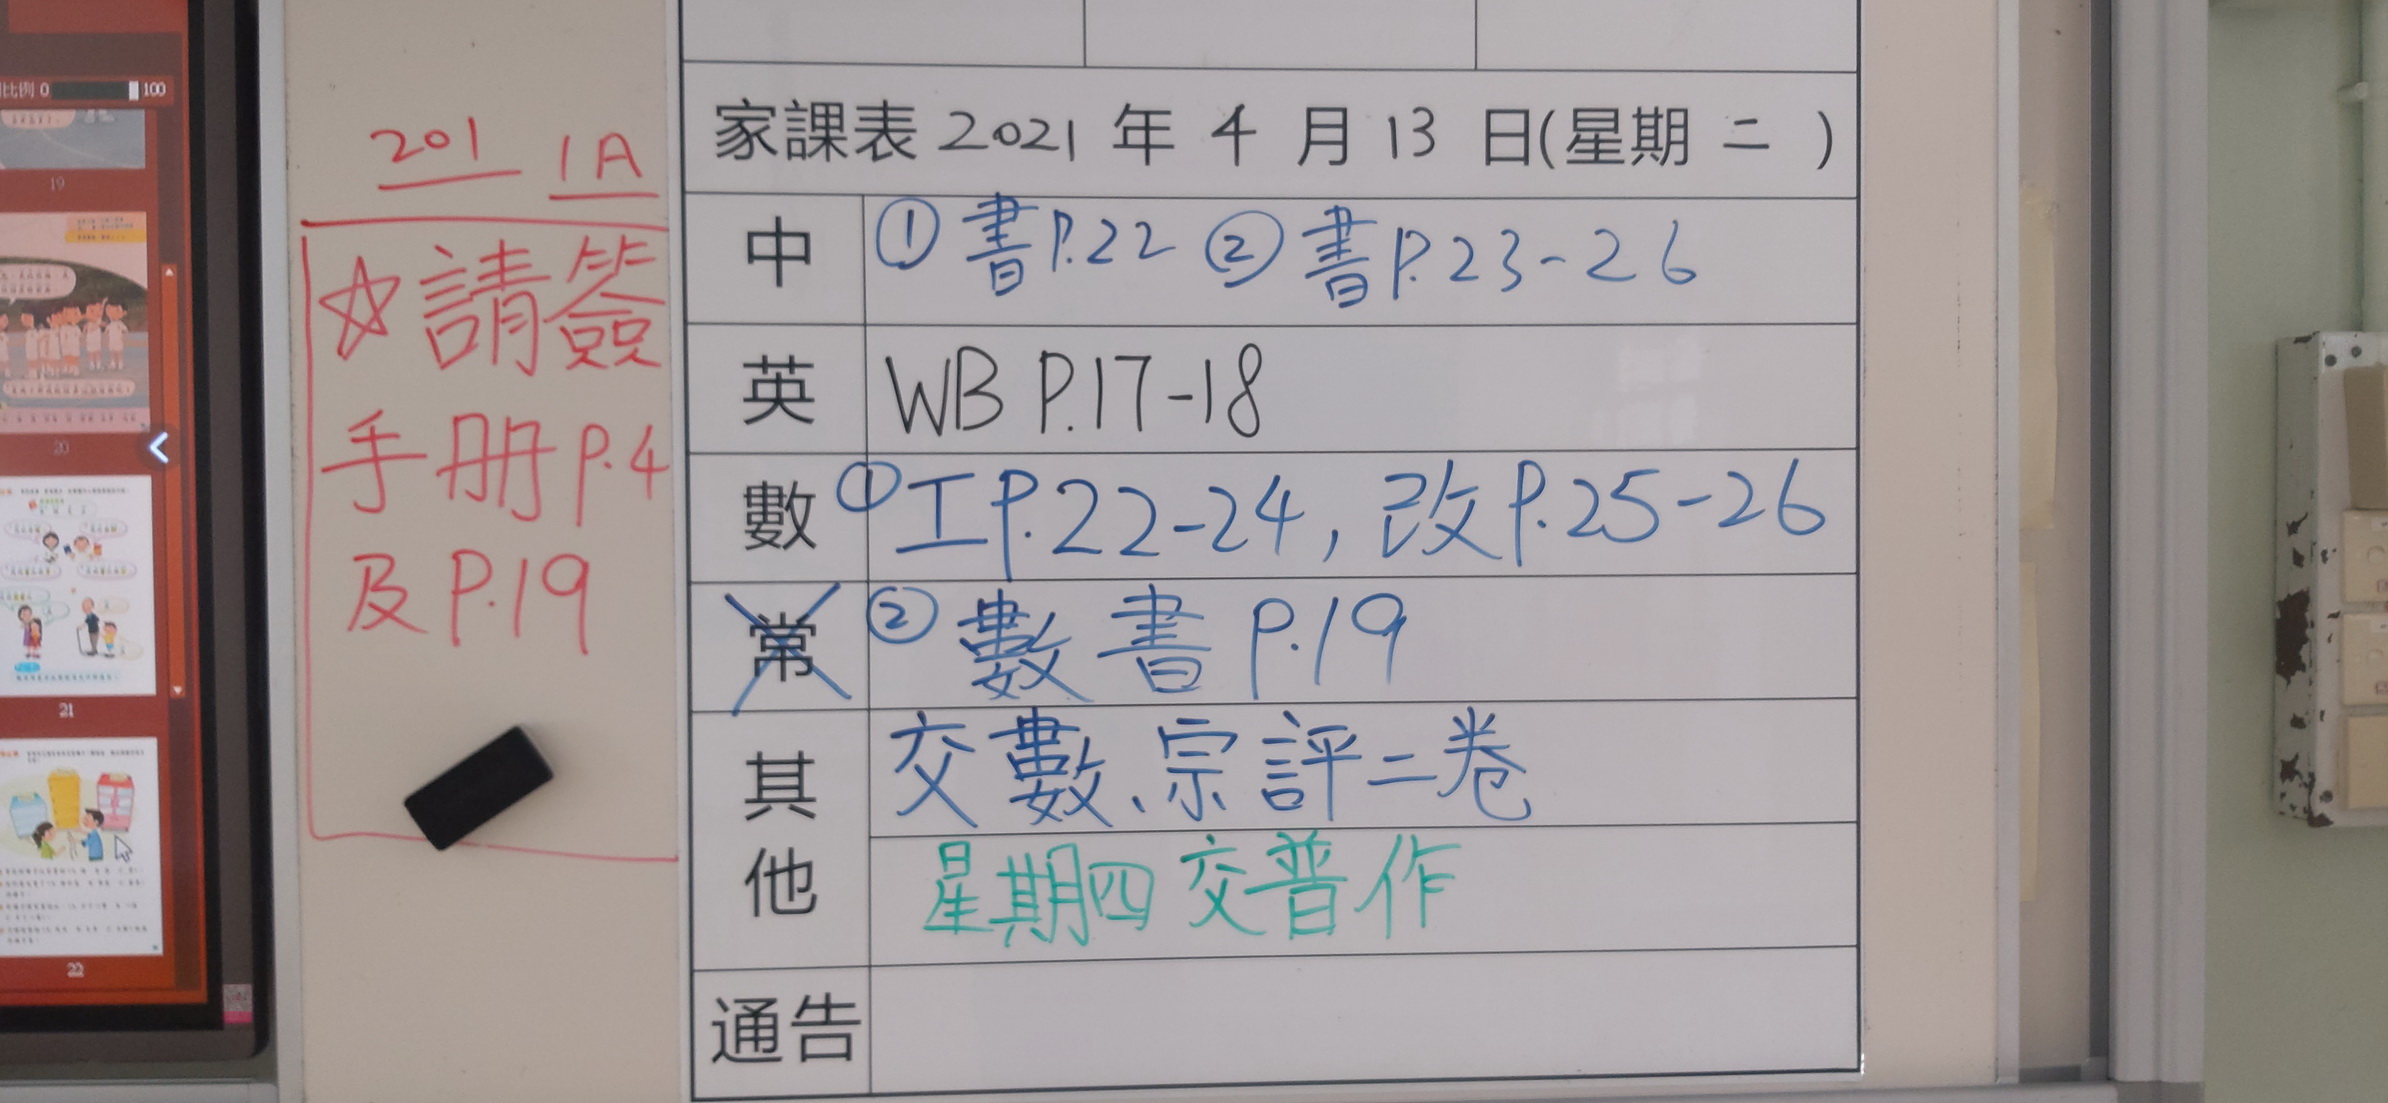 比例 0 100
19
20
21
22
201 1A
☆請簽
手册 P.4
及 P.19
家課表 2021 年 4 月 13 日(星期 二 )
中 ① 書 P.22 ② 書 P.23-26
英 WB P.17-18
數 ① 工 P.22-24, 改 P.25-26
常 ② 數書 P.19
其他 交數、宗評二卷
星期四交普作
通告